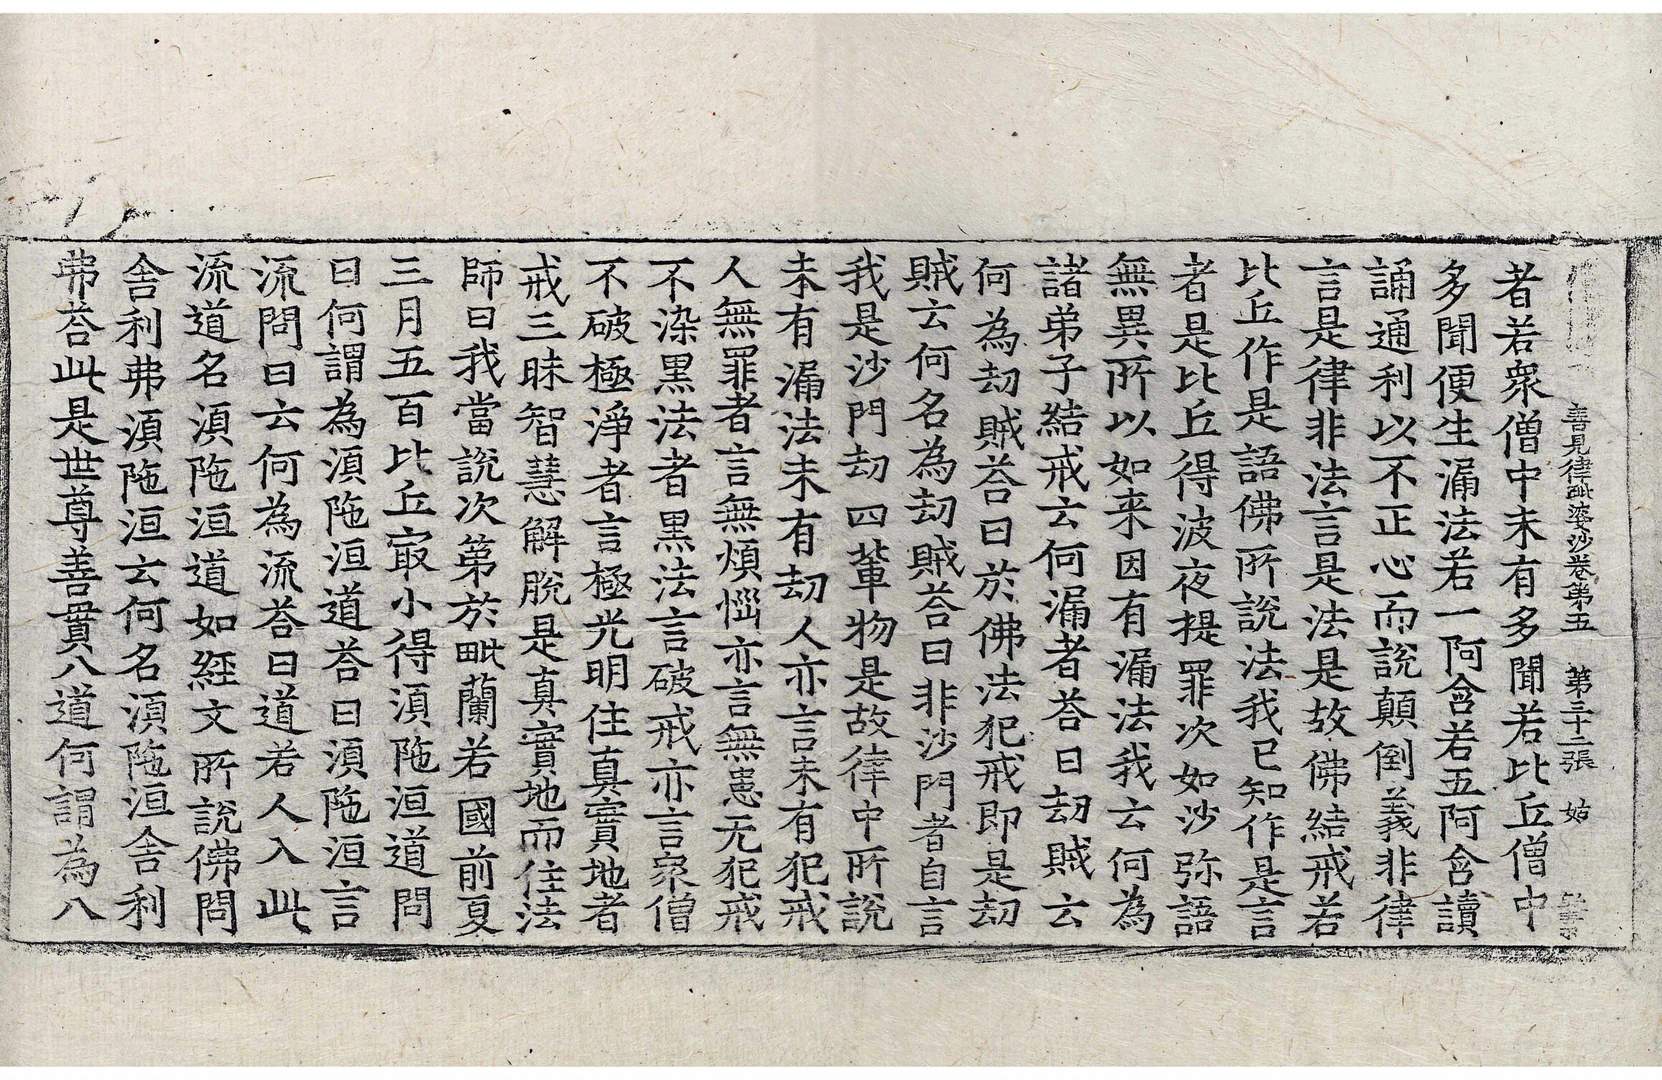 善見律毗婆沙卷第五 第三十二張 姑
者若衆僧中未有多聞若比丘僧中
多聞便生漏法若一阿含若五阿含讀
誦通利以不正心而說顛倒義非律
言是律非法言是法是故佛結戒若
比丘作是語佛所說法我已知作是言
者是比丘得波夜提罪次如沙弥語
無異所以如来因有漏法我云何為
諸弟子結戒云何漏者荅曰劫賊云
何為劫賊荅曰於佛法犯戒即是劫
賊云何名為劫賊荅曰非沙門者自言
我是沙門劫四軰物是故律中所說
未有漏法未有劫人亦言未有犯戒
人無罪者言無煩惱亦言無恚无犯戒
不染黒法者黒法言破戒亦言衆僧
不破極淨者言極光明住真實地者
戒三昧智慧解脫是真實地而住法
師曰我當說次第於毗蘭若國前夏
三月五百比丘冣小得湏陁洹道問
曰何謂為湏陁洹道荅曰湏陁洹言
流問曰云何為流荅曰道若人入此
流道名湏陁洹道如經文所說佛問
舎利弗湏陁洹云何名湏陁洹舎利
弗荅此是世尊善貫八道何謂為八